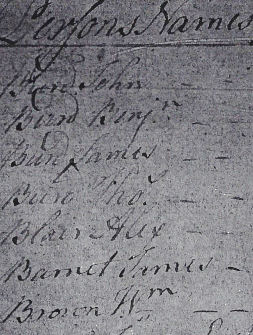 Persons Names
Bird John - -
Burd Benjn - -
Burd James - -
Burd Thos. - -
Blair Alex - -
Barnet James -
Brown Wm - -